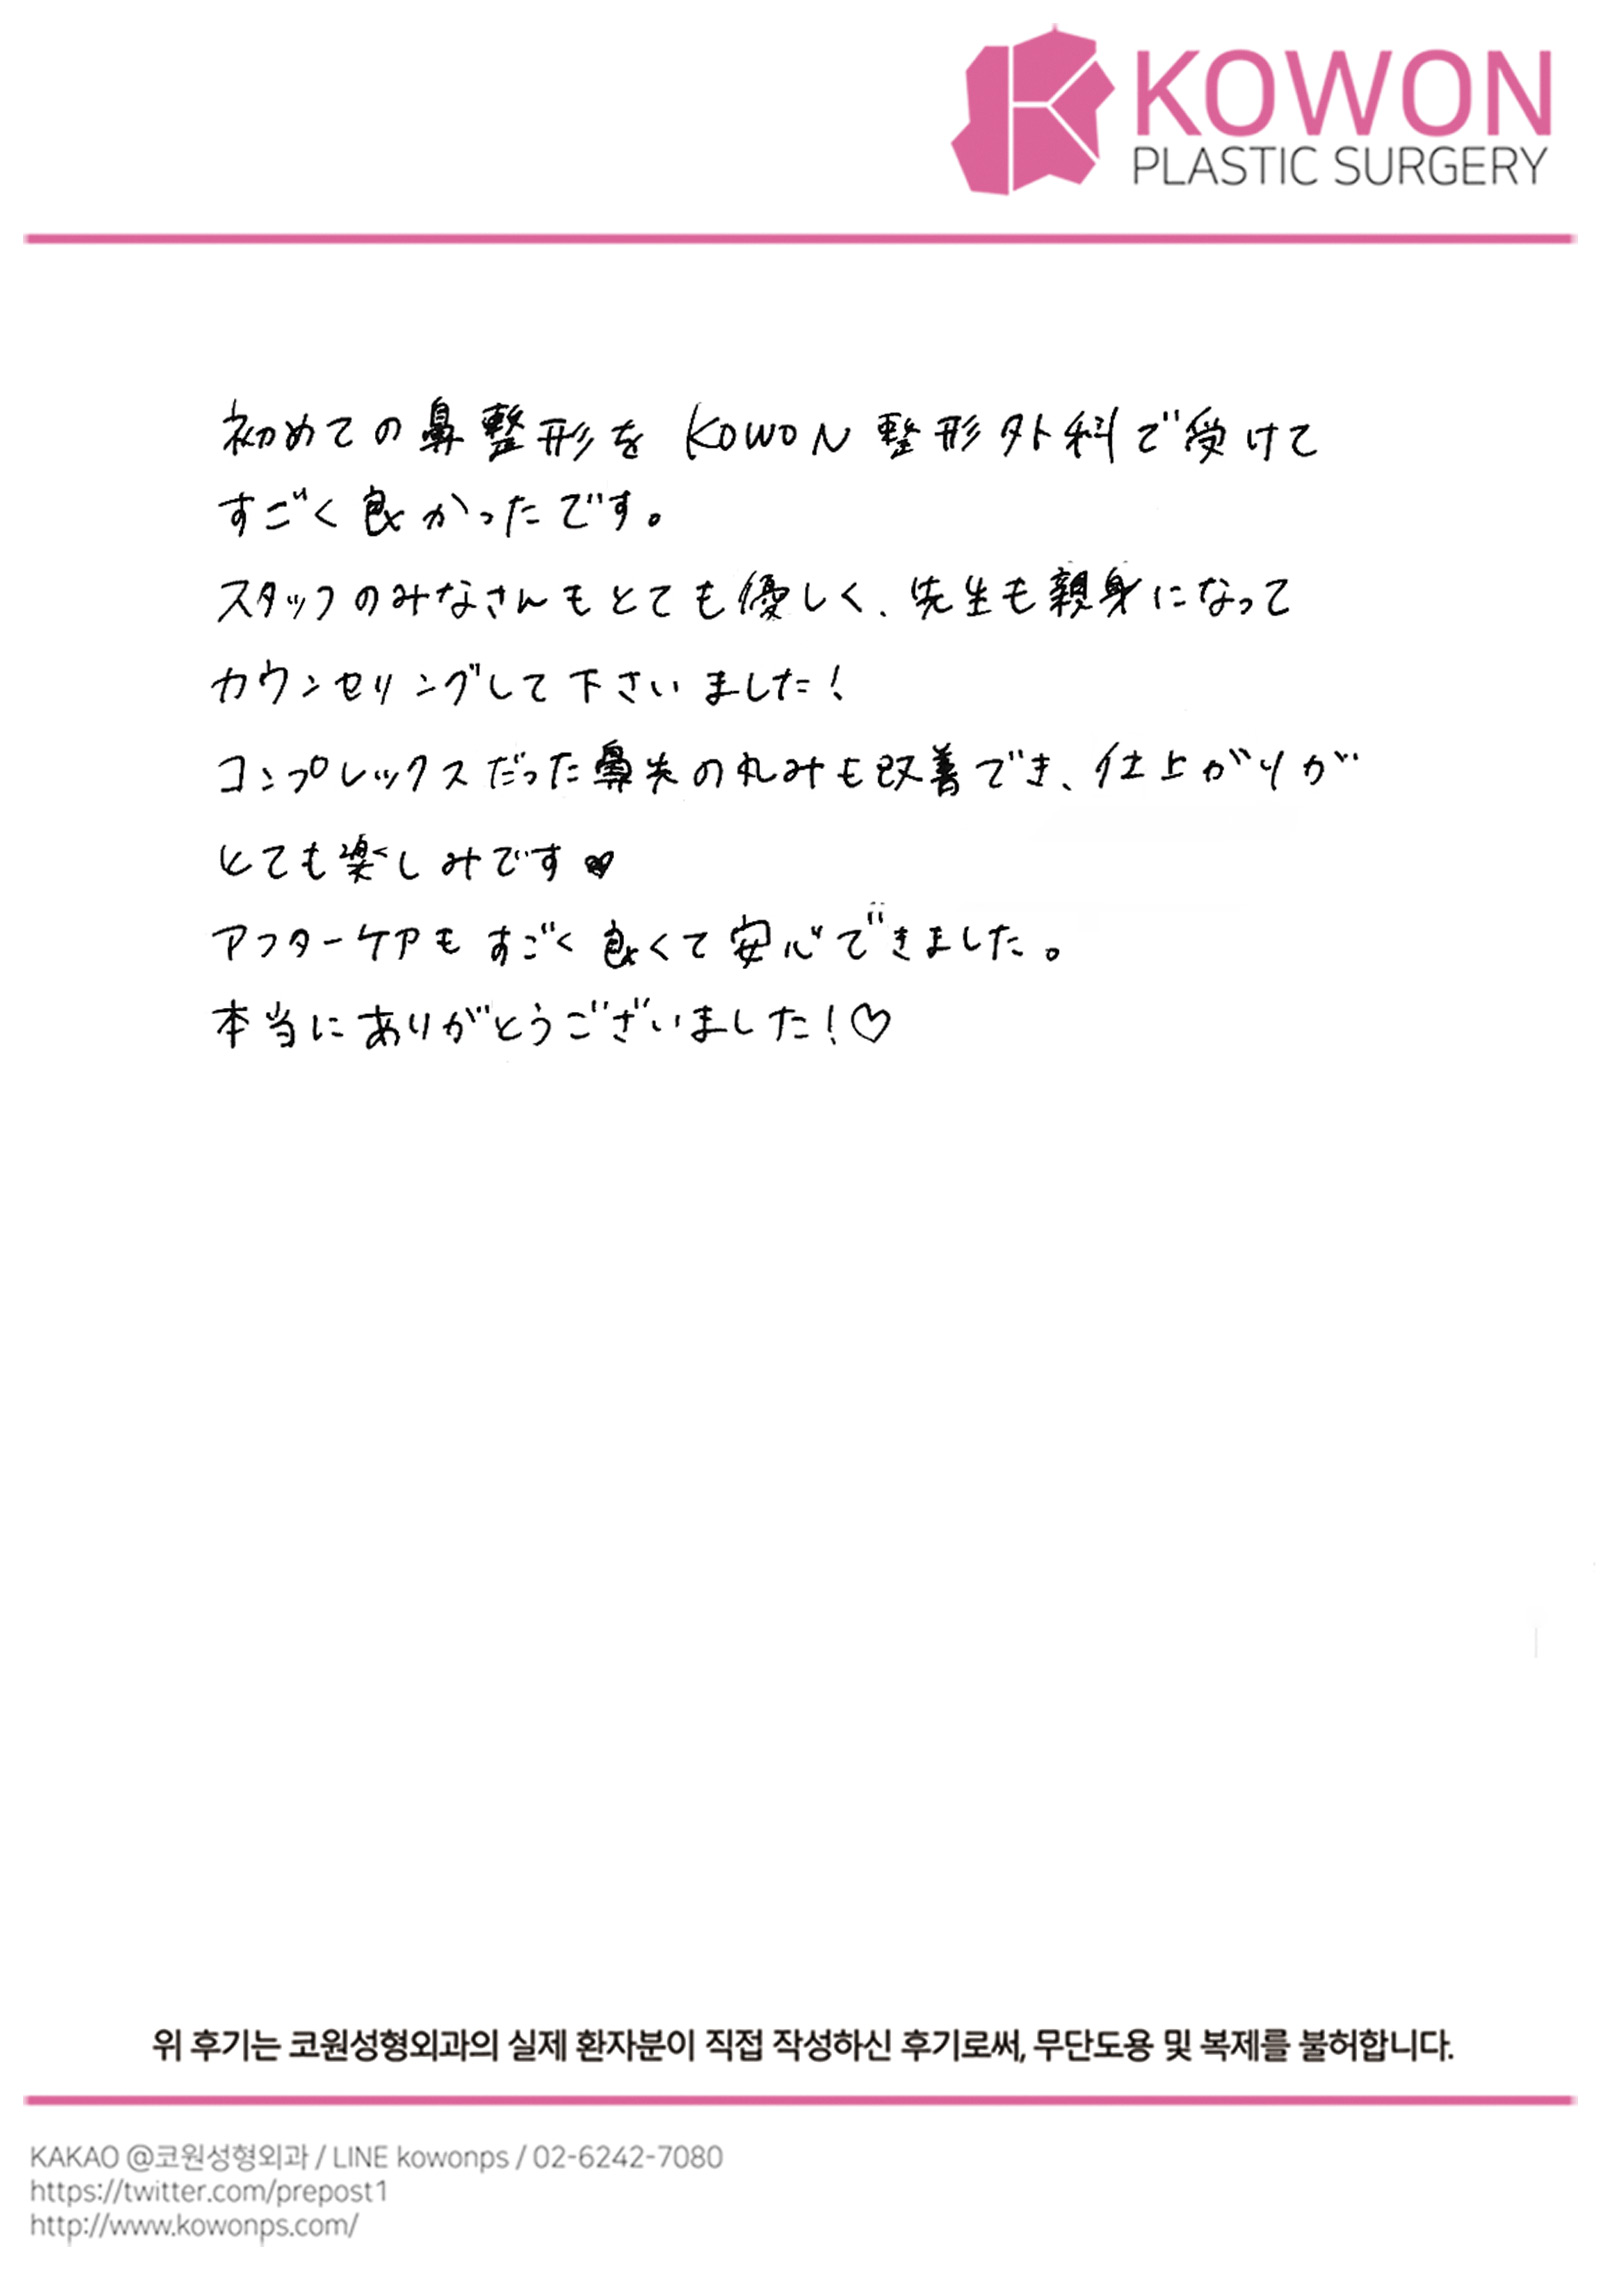 KOWON
PLASTIC SURGERY
初めての鼻整形を KOWON 整形外科で受けて
すごく良かったです。
スタッフのみなさんもとても優しく、先生も親身になって
カウンセリングして下さいました!
コンプレックスだった鼻先の丸みも改善でき、仕上がりが
とても楽しみです♥
アフターケアも すごく 良くて 安心できました。
本当にありがとうございました!♡
위 후기는 코원성형외과의 실제 환자분이 직접 작성하신 후기로써, 무단도용 및 복제를 불허합니다.
KAKAO @코원성형외과 / LINE kowonps / 02-6242-7080
https://twitter.com/prepost1
http://www.kowonps.com/